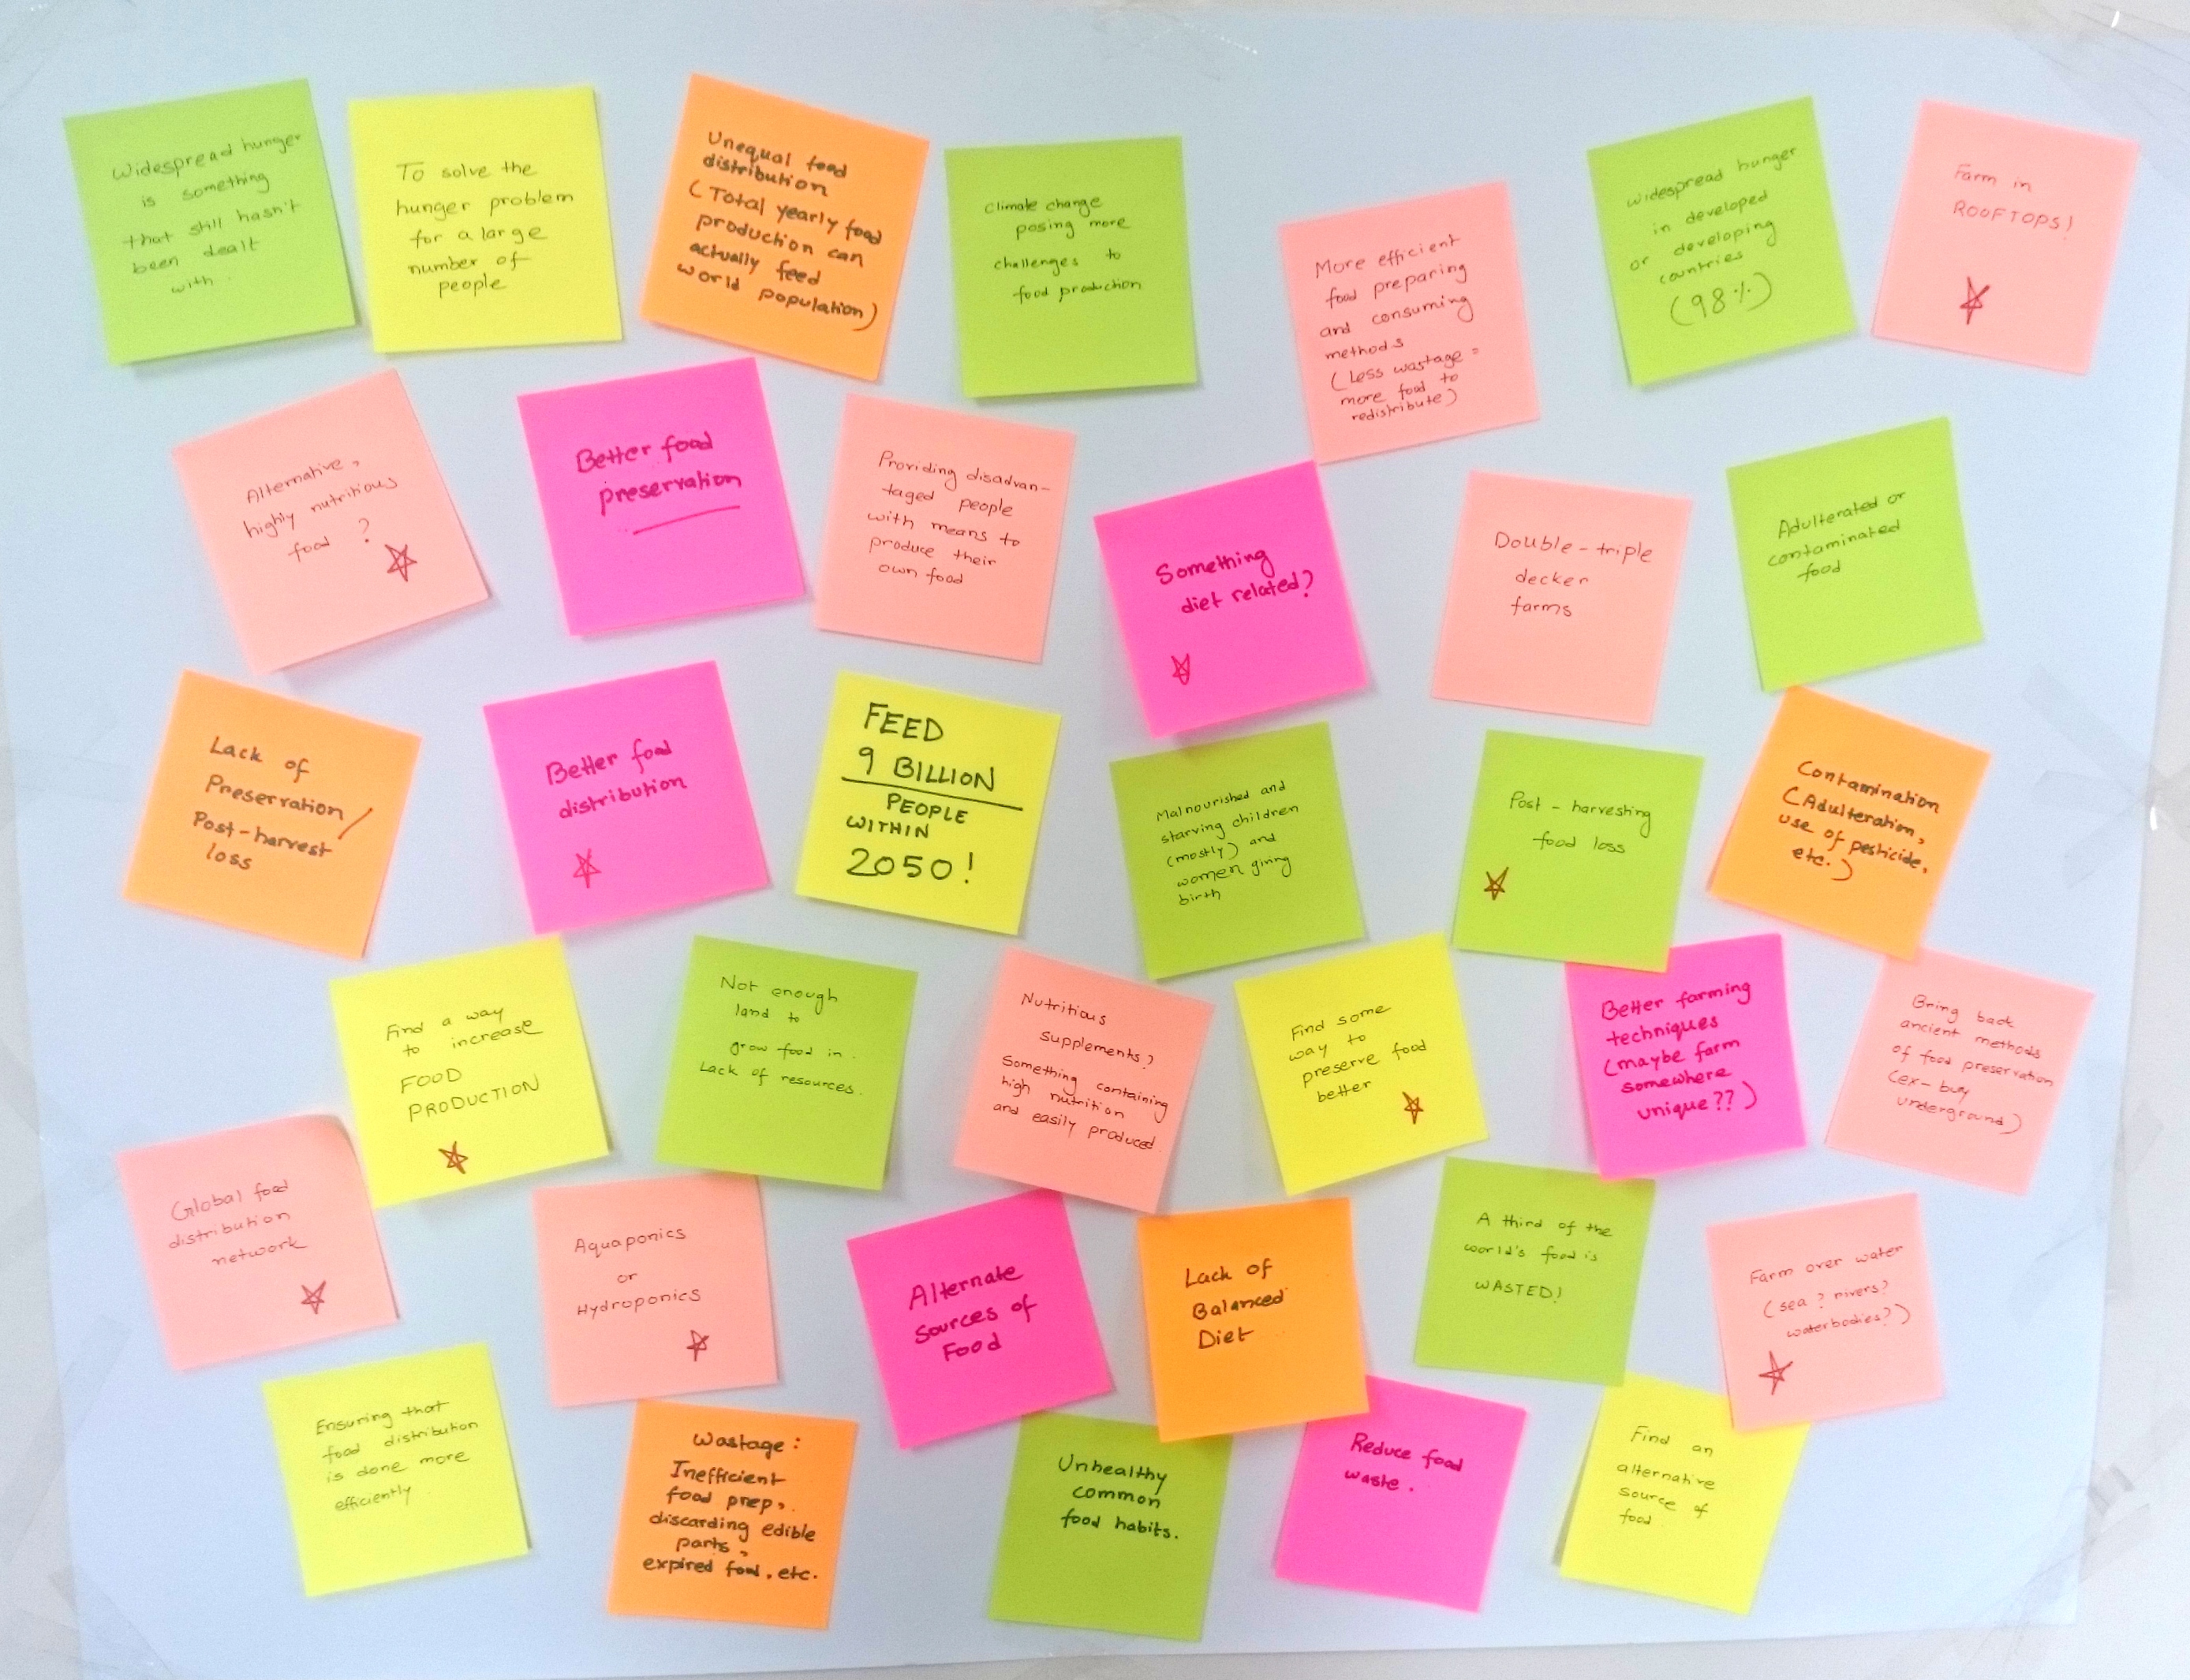 Widespread hunger
is something
that still hasn't
been dealt
with.
To solve the
hunger problem
for a large
number of
people
Unequal food
distribution
(Total yearly food
production can
actually feed
world population)
Climate change
posing more
challenges to
food production
More efficient
food preparing
and consuming
methods
(Less wastage =
more food to
redistribute)
Widespread hunger
in developed
or developing
countries
(98%)
Farm in
ROOFTOPS!
Alternative,
highly nutritious
food ?
Better food
preservation
Providing disadvan-
taged people
with means to
produce their
own food
Something
diet related?
Double-triple
decker
farms
Adulterated or
contaminated
food
Lack of
Preservation/
Post-harvest
loss
Better food
distribution
FEED
9 BILLION
PEOPLE
WITHIN
2050!
Malnourished and
starving children
(mostly) and
women giving
birth
Post-harvesting
food loss
Contamination
(Adulteration,
use of pesticide,
etc.)
Find a way
to increase
FOOD
PRODUCTION
Not enough
land to
grow food in.
Lack of resources.
Nutritious
supplements?
Something containing
high nutrition
and easily produced.
Find some
way to
preserve food
better
Better farming
techniques
(maybe farm
somewhere
unique??)
Bring back
ancient methods
of food preservation
(ex-bury
underground)
Global food
distribution
network
Aquaponics
or
Hydroponics
Alternate
Sources of
Food
Lack of
Balanced
Diet
A third of the
world's food is
WASTED!
Farm over water
(sea? rivers?
waterbodies??)
Ensuring that
food distribution
is done more
efficiently.
Wastage:
Inefficient
food prep,
discarding edible
parts,
expired food, etc.
Unhealthy
common
food habits.
Reduce food
waste.
Find an
alternative
source of
food